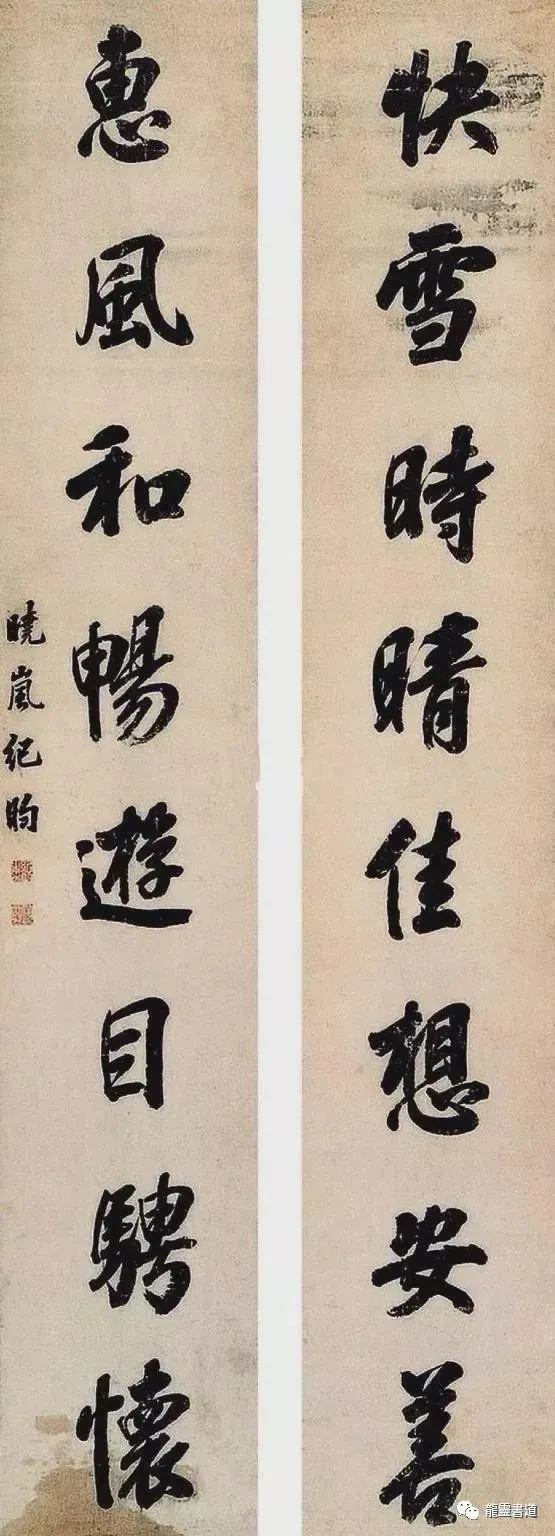 快雪時晴佳想安善
惠風和暢遊目騁懷
曉嵐紀昀
龍靈書道